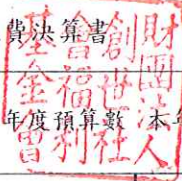 費決算書
年度預算數 本
財團法人
創世社
會福利
基金會